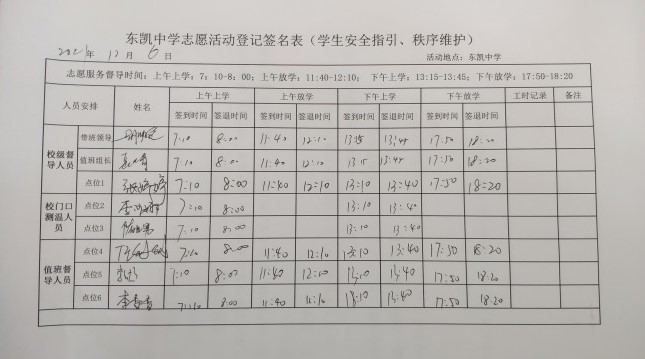 东凯中学志愿活动登记签名表（学生安全指引、秩序维护）
2021年 12月 6日 活动地点：东凯中学
志愿服务督导时间：上午上学：7：10-8：00；上午放学：11:40-12:10； 下午上学：13:15-13:45；下午放学：17:50-18:20
人员安排 姓名 上午上学 上午放学 下午上学 下午放学 工时记录 备注
签到时间 签退时间 签到时间 签退时间 签到时间 签退时间 签到时间 签退时间
校级督导人员 带班领导 7:10 8:00 11:40 12:10 13:15 13:45 17:50 18:20
值班组长 7:10 8:00 11:40 12:10 13:15 13:45 17:50 18:20
点位1 7:10 8:00 11:40 12:10 13:10 13:40 17:50 18:20
校门口测温人员 点位2 7:10 8:00 13:10 13:40
点位3 7:10 8:00 13:10 13:40
值班督导人员 点位4 7:10 8:00 11:40 12:10 13:10 13:40 17:50 18:20
点位5 7:10 8:00 11:40 12:10 13:10 13:40 17:50 18:20
点位6 7:10 8:00 11:40 12:10 13:10 13:40 17:50 18:20